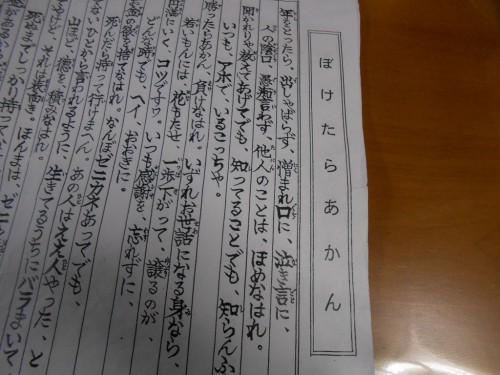 ぼけたらあかん
年をとったら、出しゃばらず、憎まれ口に、泣き言に、
人の陰口、愚痴言わず、他人のことは、ほめなはれ。
聞かれりゃ教えてあげてでも、知ってることでも、知らんふ
いつも、アホで、いるこっちゃ。
勝ったらあかん、負けなはれ。いずれお世話になる身なら、
若いもんには、花もたせ、一歩下がって、譲るのが、
満にいく、コツですわ。いつも感謝を、忘れずに、
どんな時でも、ヘイ、おおきに。
金の欲を捨てなはれ。なんぼゼニカネあってでも、
死んだら持って行けまへん。あの人はええ人やった、と
ないひとから言われるように、生きてるうちにバラまいて
山ほど、徳を、積みなはれ。
けど、それは表向き。ほんまは、ゼニ
死ぬまでしっかり持ってい